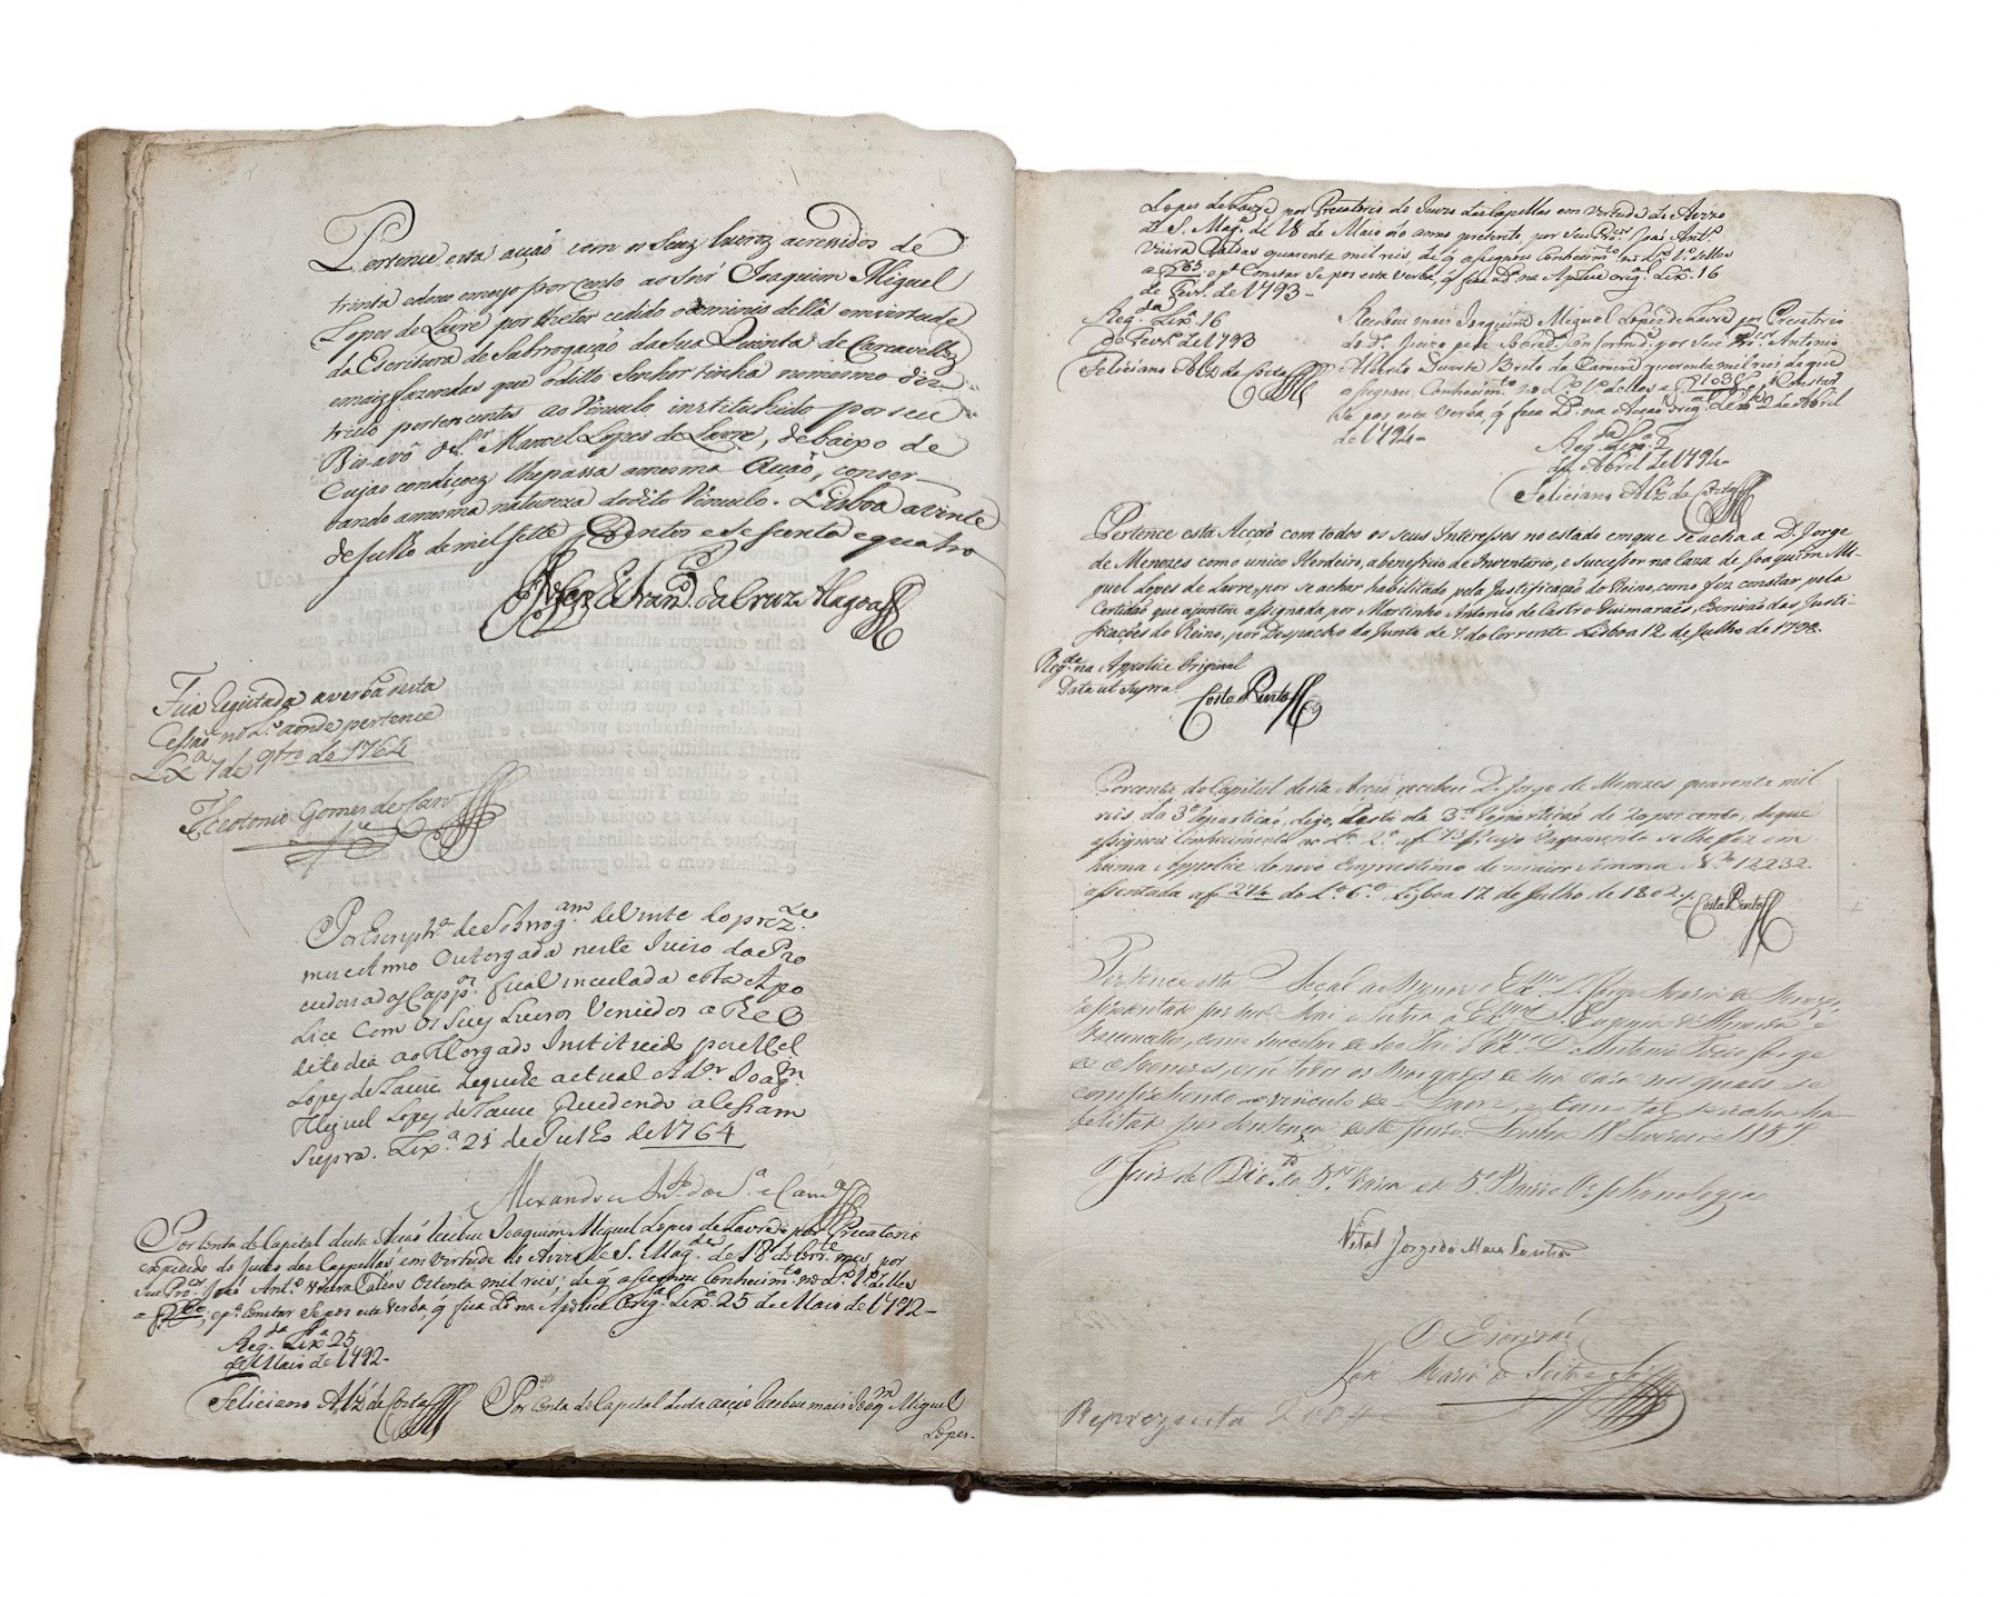 Pertence esta acção com os seus lucros acrescidos de
trinta e dous e meyo por cento ao Snr Joaquim Miguel
Lopes de Lavre por lhe ter cedido o dominio della em virtude
da Escritura de Subrrogação da sua Quinta de Carcavellos
e maiz fazendas que o ditto Senhor tinha no mesmo dis-
tricto pertencentes ao Vinculo instituhido por seu
Bis-avô o Sr. Manoel Lopes de Lavre, debaixo de
cujas condiçoez lhe passa a mesma Acção, conser-
vando a mesma natureza do dito Vinculo. Lisboa a vinte
de Julho de mil sette Centos e sesenta e quatro
Jozé Fran.co da Cruz Alagoa
Fica registada a verba desta
cessão no L.o aonde pertence
Lx.a 7 de 9bro de 1764
Theotonio Gomes de Carv.
Por Escriptr.a de Subrrog.am de Vinte do prez.te
mez e Anno Outorgada neste Juizo da Pro
vedoria das Capp.as fica vinculada esta Apo
lice com os Seuz Lucros Vencidos
dito dia ao Morgado Instituido por M.el
Lopez de Lavre de que he actual Adm.or Joaq.m
Miguel Lopez de Lavre
Supra. Lix.a 21 de Julho de 1764
Alexandre Ant.o da S.a e Cam.a
Por conta do Capital desta Acção recebeu Joaquim Miguel Lopes de Lavre por Precatorio
expedido do Juizo das Cappellas em Vertude de Avizo de S. Mag.de de 18 do corr.te mes, por
seu Pro.cor João Ant.o Vieira Caldas Oitenta mil reis; de q̃ assignou Conhecim.to no L.o 1.o delles
a f 260, e p.a Constar Se pos esta Verba, q̃ fica L.da na Apolice Orig.al Lix.a 25 de Maio de 1792-
Reg.da Lix.a 25
de Maio de 1792-
Feliciano Alz da Costa
Por Conta do Capital desta acção Recebeu mais Joaq.m Miguel
Lopes-
Lopes de Lavre por Precatorio do Juizo das Capellas em Vertude de Avizo
de S. Mag.e de 18 de Maio do anno preterito, por seu Pro.cor João Ant.o
Vieira Caldas quarenta mil reis, de q̃ assignou Conhecim.to no L.o 1.o delles
a f 765 e p.a Constar Se pos esta Verba, q̃ fica L.da na Apolice orig.al Lix.a 16
de Fevr.o de 1793-
Reg.da Lix.a 16
de Fevr.o de 1793
Feliciano Alz da Costa
Recebeu mais Joaquim Miguel Lopes de Lavre por Precatorio
do d.o Juizo por seu Pro.cor Antonio
Alberto Duarte Brito da Camera quarenta mil reis de que
assignou Conhecim.to no L.o 1.o delles a f 1038 e p.a Constar
Se pos esta Verba, q̃ fica L.da na Acção orig.al Lix.a 2 de Abril
de 1794-
Reg.da Lix.a 2
de Abril de 1794-
Feliciano Alz da Costa
Pertence esta Acção com todos os seus Interesses no estado em que se acha a D. Jorge
de Menezes como unico Herdeiro, a beneficio de Inventario, e successor na Caza de Joaquim Mi-
guel Lopes de Lavre, por se achar habilitado pela Justificação do Reino, como fez constar pela
Certidão que ajuntou assignada por Martinho Antonio de Castro Guimaraẽs, Escrivão das Justi-
ficações do Reino, por Despacho da Junta de 7. do Corrente. Lisboa 12 de Julho de 1798.
Reg.da na Appolice Original
Data ut supra.
Costa Pinto
Por conta do Capital desta Acção recebeu D. Jorge de Menezes quarenta mil
reis da 3.a Repartição, digo, resto da 3.a Repartição de 20 por cento, de que
assignou Conhecimento no L.o 2.o a f 73 cujo Pagamento se lhe fez em
huma Appolice do novo Emprestimo de maior somma N.o 12232.
assentada a f 274 do L.o 6.o Lisboa 17 de Julho de 1802.
Costa Pinto
Pertence esta Acção ao Menor o Ex.mo D. Jorge Maria de Menezes
representado por sua Mai e Tutora a Ex.ma D. Eugenia de Menezes e
Vasconcellos, como successor de seu Pai o Ex.mo D. Antonio Jorge
de Menezes, em todos os Morgados de sua casa nos quaes se
comprehende o vinculo de Lavre, e como tal se acha ha
bilitado por sentença deste Juizo. Lisboa 18
O Juiz de Dir.to da 5.a Vara
Vital Jorge de Maia
O Escrivão
José Maria
Reprezenta